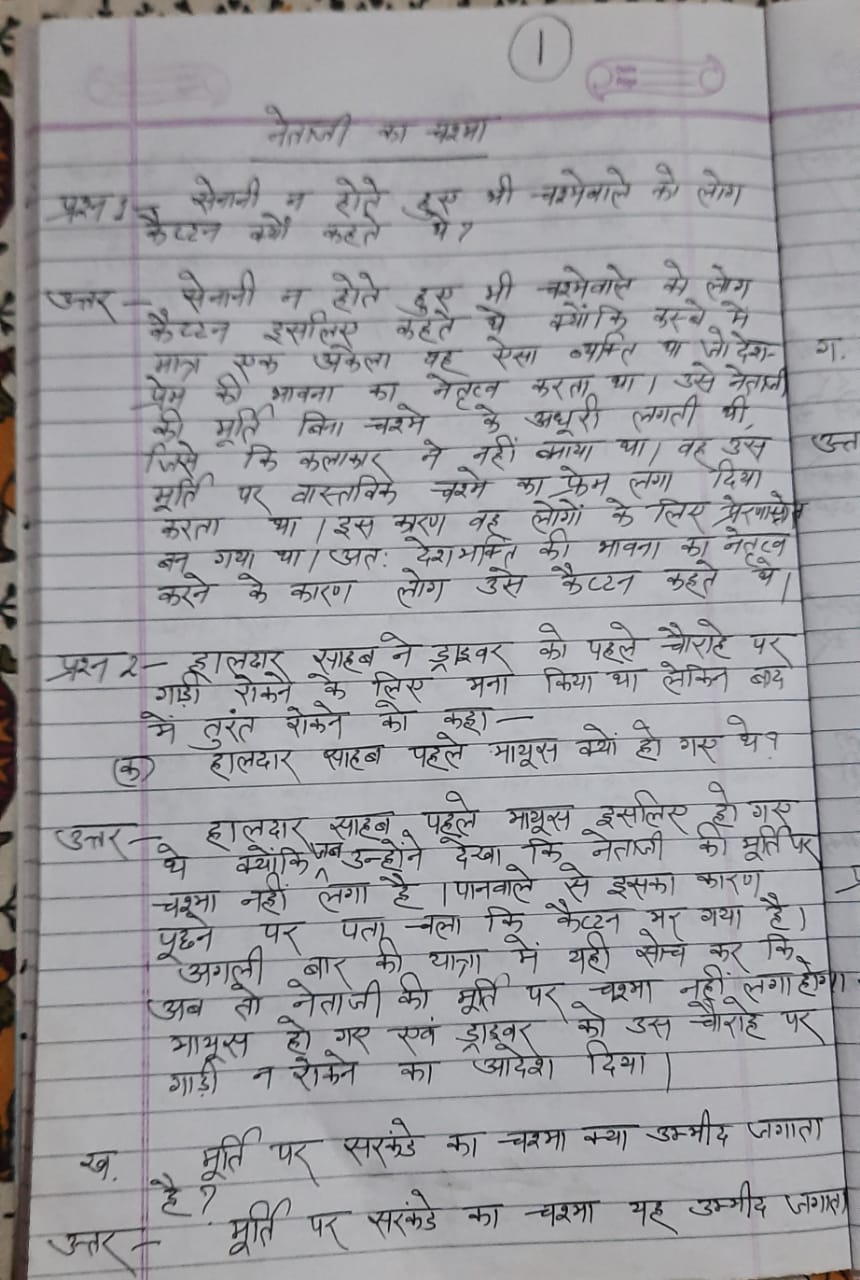 1
नेताजी का चश्मा
प्रश्न 1 - सेनानी न होते हुए भी चश्मेवाले को लोग
कैप्टन क्यों कहते थे?
उत्तर - सेनानी न होते हुए भी चश्मेवाले को लोग
कैप्टन इसलिए कहते थे क्योंकि कस्बे में
मात्र एक अकेला वह ऐसा व्यक्ति था जो देश-
प्रेम की भावना का नेतृत्व करता था। उसे नेताजी
की मूर्ति बिना चश्मे के अधूरी लगती थी,
जिसे कि कलाकार ने नहीं बनाया था। वह उस
मूर्ति पर वास्तविक चश्मे का फ्रेम लगा दिया
करता था। इस कारण वह लोगों के लिए प्रेरणास्रोत
बन गया था। अतः देशभक्ति की भावना का नेतृत्व
करने के कारण लोग उसे कैप्टन कहते थे।
प्रश्न 2 - हालदार साहब ने ड्राइवर को पहले चौराहे पर
गाड़ी रोकने के लिए मना किया था लेकिन बाद
में तुरंत रोकने को कहा -
(क) हालदार साहब पहले मायूस क्यों हो गए थे?
उत्तर - हालदार साहब पहले मायूस इसलिए हो गए
थे क्योंकि जब उन्होंने देखा कि नेताजी की मूर्ति पर
चश्मा नहीं लगा है। पानवाले से इसका कारण
पूछने पर पता चला कि कैप्टन मर गया है।
अगली बार की यात्रा में यही सोच कर कि
अब तो नेताजी की मूर्ति पर चश्मा नहीं लगा होगा।
मायूस हो गए एवं ड्राइवर को उस चौराहे पर
गाड़ी न रोकने का आदेश दिया।
ख. मूर्ति पर सरकंडे का चश्मा क्या उम्मीद जगाता
है?
उत्तर - मूर्ति पर सरकंडे का चश्मा यह उम्मीद जगाता
ग.